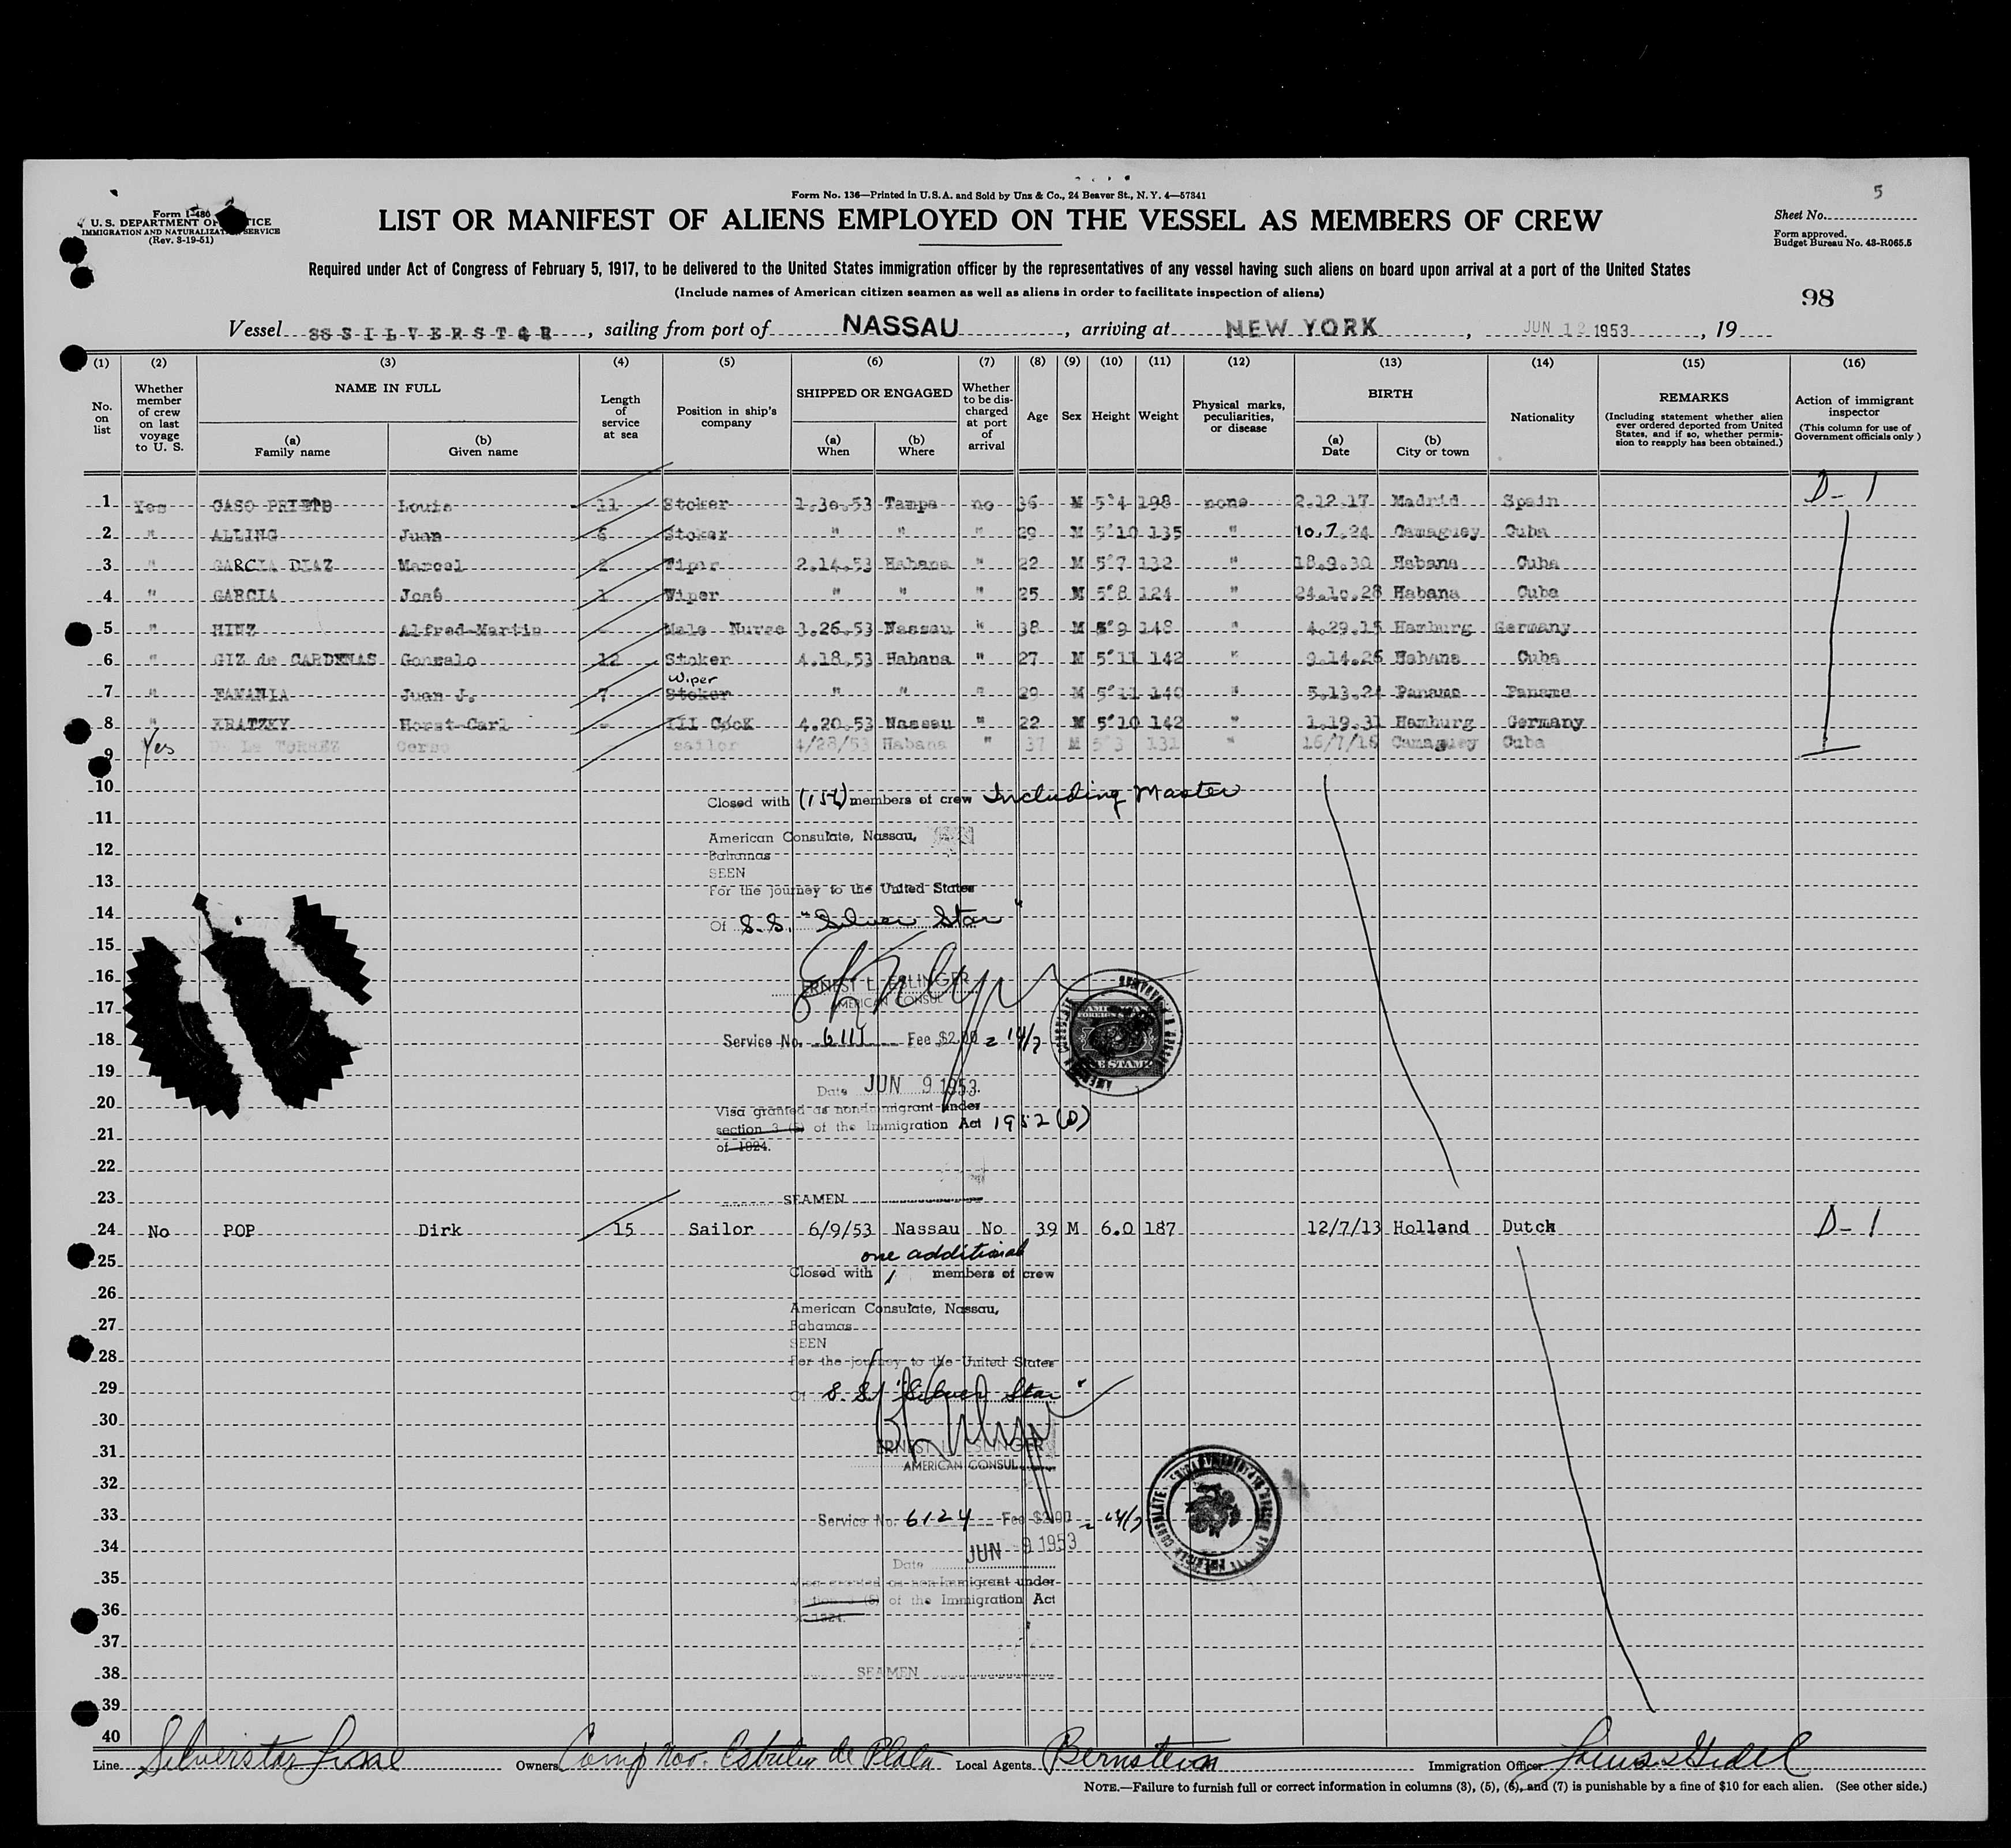 5
Form No. 136—Printed in U.S.A. and Sold by Unz & Co., 24 Beaver St., N. Y. 4—57341
Form I-480
U. S. DEPARTMENT OF
IMMIGRATION AND NATURALIZATION SERVICE
(Rev. 3-19-51)
LIST OR MANIFEST OF ALIENS EMPLOYED ON THE VESSEL AS MEMBERS OF CREW
Sheet No.
Form approved.
Budget Bureau No. 43-R065.5
Required under Act of Congress of February 5, 1917, to be delivered to the United States immigration officer by the representatives of any vessel having such aliens on board upon arrival at a port of the United States
(Include names of American citizen seamen as well as aliens in order to facilitate inspection of aliens)
98
Vessel SS SILVERSTAR, sailing from port of NASSAU, arriving at NEW YORK, JUN 12 1953, 19
(1) (2) (3) (4) (5) (6) (7) (8) (9) (10) (11) (12) (13) (14) (15) (16)
No. on list
Whether member of crew on last voyage to U. S.
NAME IN FULL
(a) Family name
(b) Given name
Length of service at sea
Position in ship's company
SHIPPED OR ENGAGED
(a) When
(b) Where
Whether to be discharged at port of arrival
Age
Sex
Height
Weight
Physical marks, peculiarities, or disease
BIRTH
(a) Date
(b) City or town
Nationality
REMARKS
(Including statement whether alien ever ordered deported from United States, and if so, whether permission to reapply has been obtained.)
Action of immigrant inspector
(This column for use of Government officials only)
1 Yes CASO PRIETO Louis 11 Stoker 1.30.53 Tampa no 36 M 5'4 198 none 2.12.17 Madrid Spain D-1
2 " ALLING Juan 6 Stoker " " " 29 M 5'10 135 " 10.7.24 Camaguey Cuba
3 " GARCIA DIAZ Marcel 2 Wiper 2.14.53 Habana " 22 M 5'7 132 " 18.9.30 Habana Cuba
4 " GARCIA José 1 Wiper " " " 25 M 5'8 124 " 24.10.28 Habana Cuba
5 " HINZ Alfred-Martin - Male Nurse 3.26.53 Nassau " 38 M 5'9 148 " 4.29.15 Hamburg Germany
6 " GIZ de CARDENAS Gonzalo 12 Stoker 4.18.53 Habana " 27 M 5'11 142 " 9.14.26 Habana Cuba
Wiper
7 " FAMANIA Juan J. 7 Stoker " " " 29 M 5'11 140 " 5.13.24 Panama Panama
8 " KRATZKY Horst-Carl - III Cook 4.20.53 Nassau " 22 M 5'10 142 " 1.19.31 Hamburg Germany
9 Yes De La TORREZ sailor 4/28/53 Habana " 37 M 5'3 131 " 16/7/16 Camaguey Cuba
10
Closed with members of crew Including Master
11
American Consulate, Nassau,
12
Bahamas
SEEN
13
For the journey to the United States
14
Of S.S. "Silver Star"
15
16
ERNEST L. ESLINGER
AMERICAN CONSUL
17
18
Service No. 6111 Fee $2.00 = 14/3
19
Date JUN 9 1953
20
Visa granted as non-immigrant under
section 3 (5) of the Immigration Act 1952 (D)
21
of 1924.
22
23
SEAMEN
24 No POP Dirk 15 Sailor 6/9/53 Nassau No 39 M 6.0 187 12/7/13 Holland Dutch D-1
one additional
25
Closed with 1 members of crew
26
American Consulate, Nassau,
27
Bahamas
SEEN
28
For the journey to the United States
29
Of S.S. "Silver Star"
30
31
ERNEST L. ESLINGER
AMERICAN CONSUL
32
33
Service No. 6124 Fee $2.00 = 14/3
34
Date JUN 9 1953
35
Visa granted as non-immigrant under
section 3 (5) of the Immigration Act
36
of 1924.
37
38
SEAMEN
39
40
Line Silverstar Line Owners Comp Nav. Estrella de Plata Local Agents Bernstein Immigration Officer
NOTE.—Failure to furnish full or correct information in columns (3), (5), (6), and (7) is punishable by a fine of $10 for each alien. (See other side.)